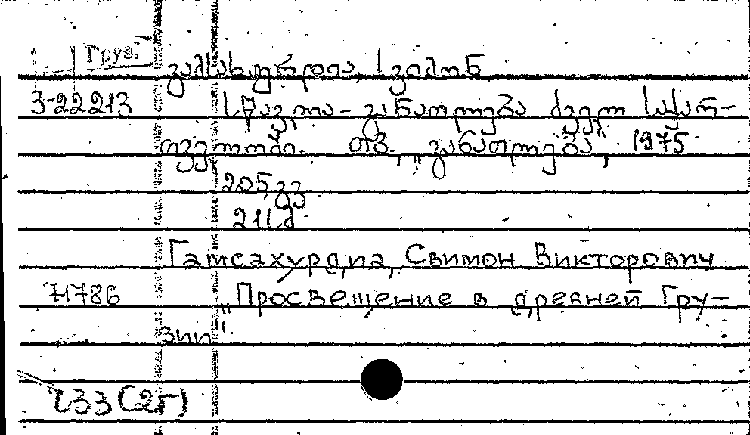 Груз.
გამსახურდია, სვიმონ
3-22213 სწავლა-განათლება ძველ საქარ-
თველოში. თბ., „განათლება", 1975
205 გვ.
Гамсахурдиа, Свимон Викторович
„Просвещение в древней Гру-
зии"